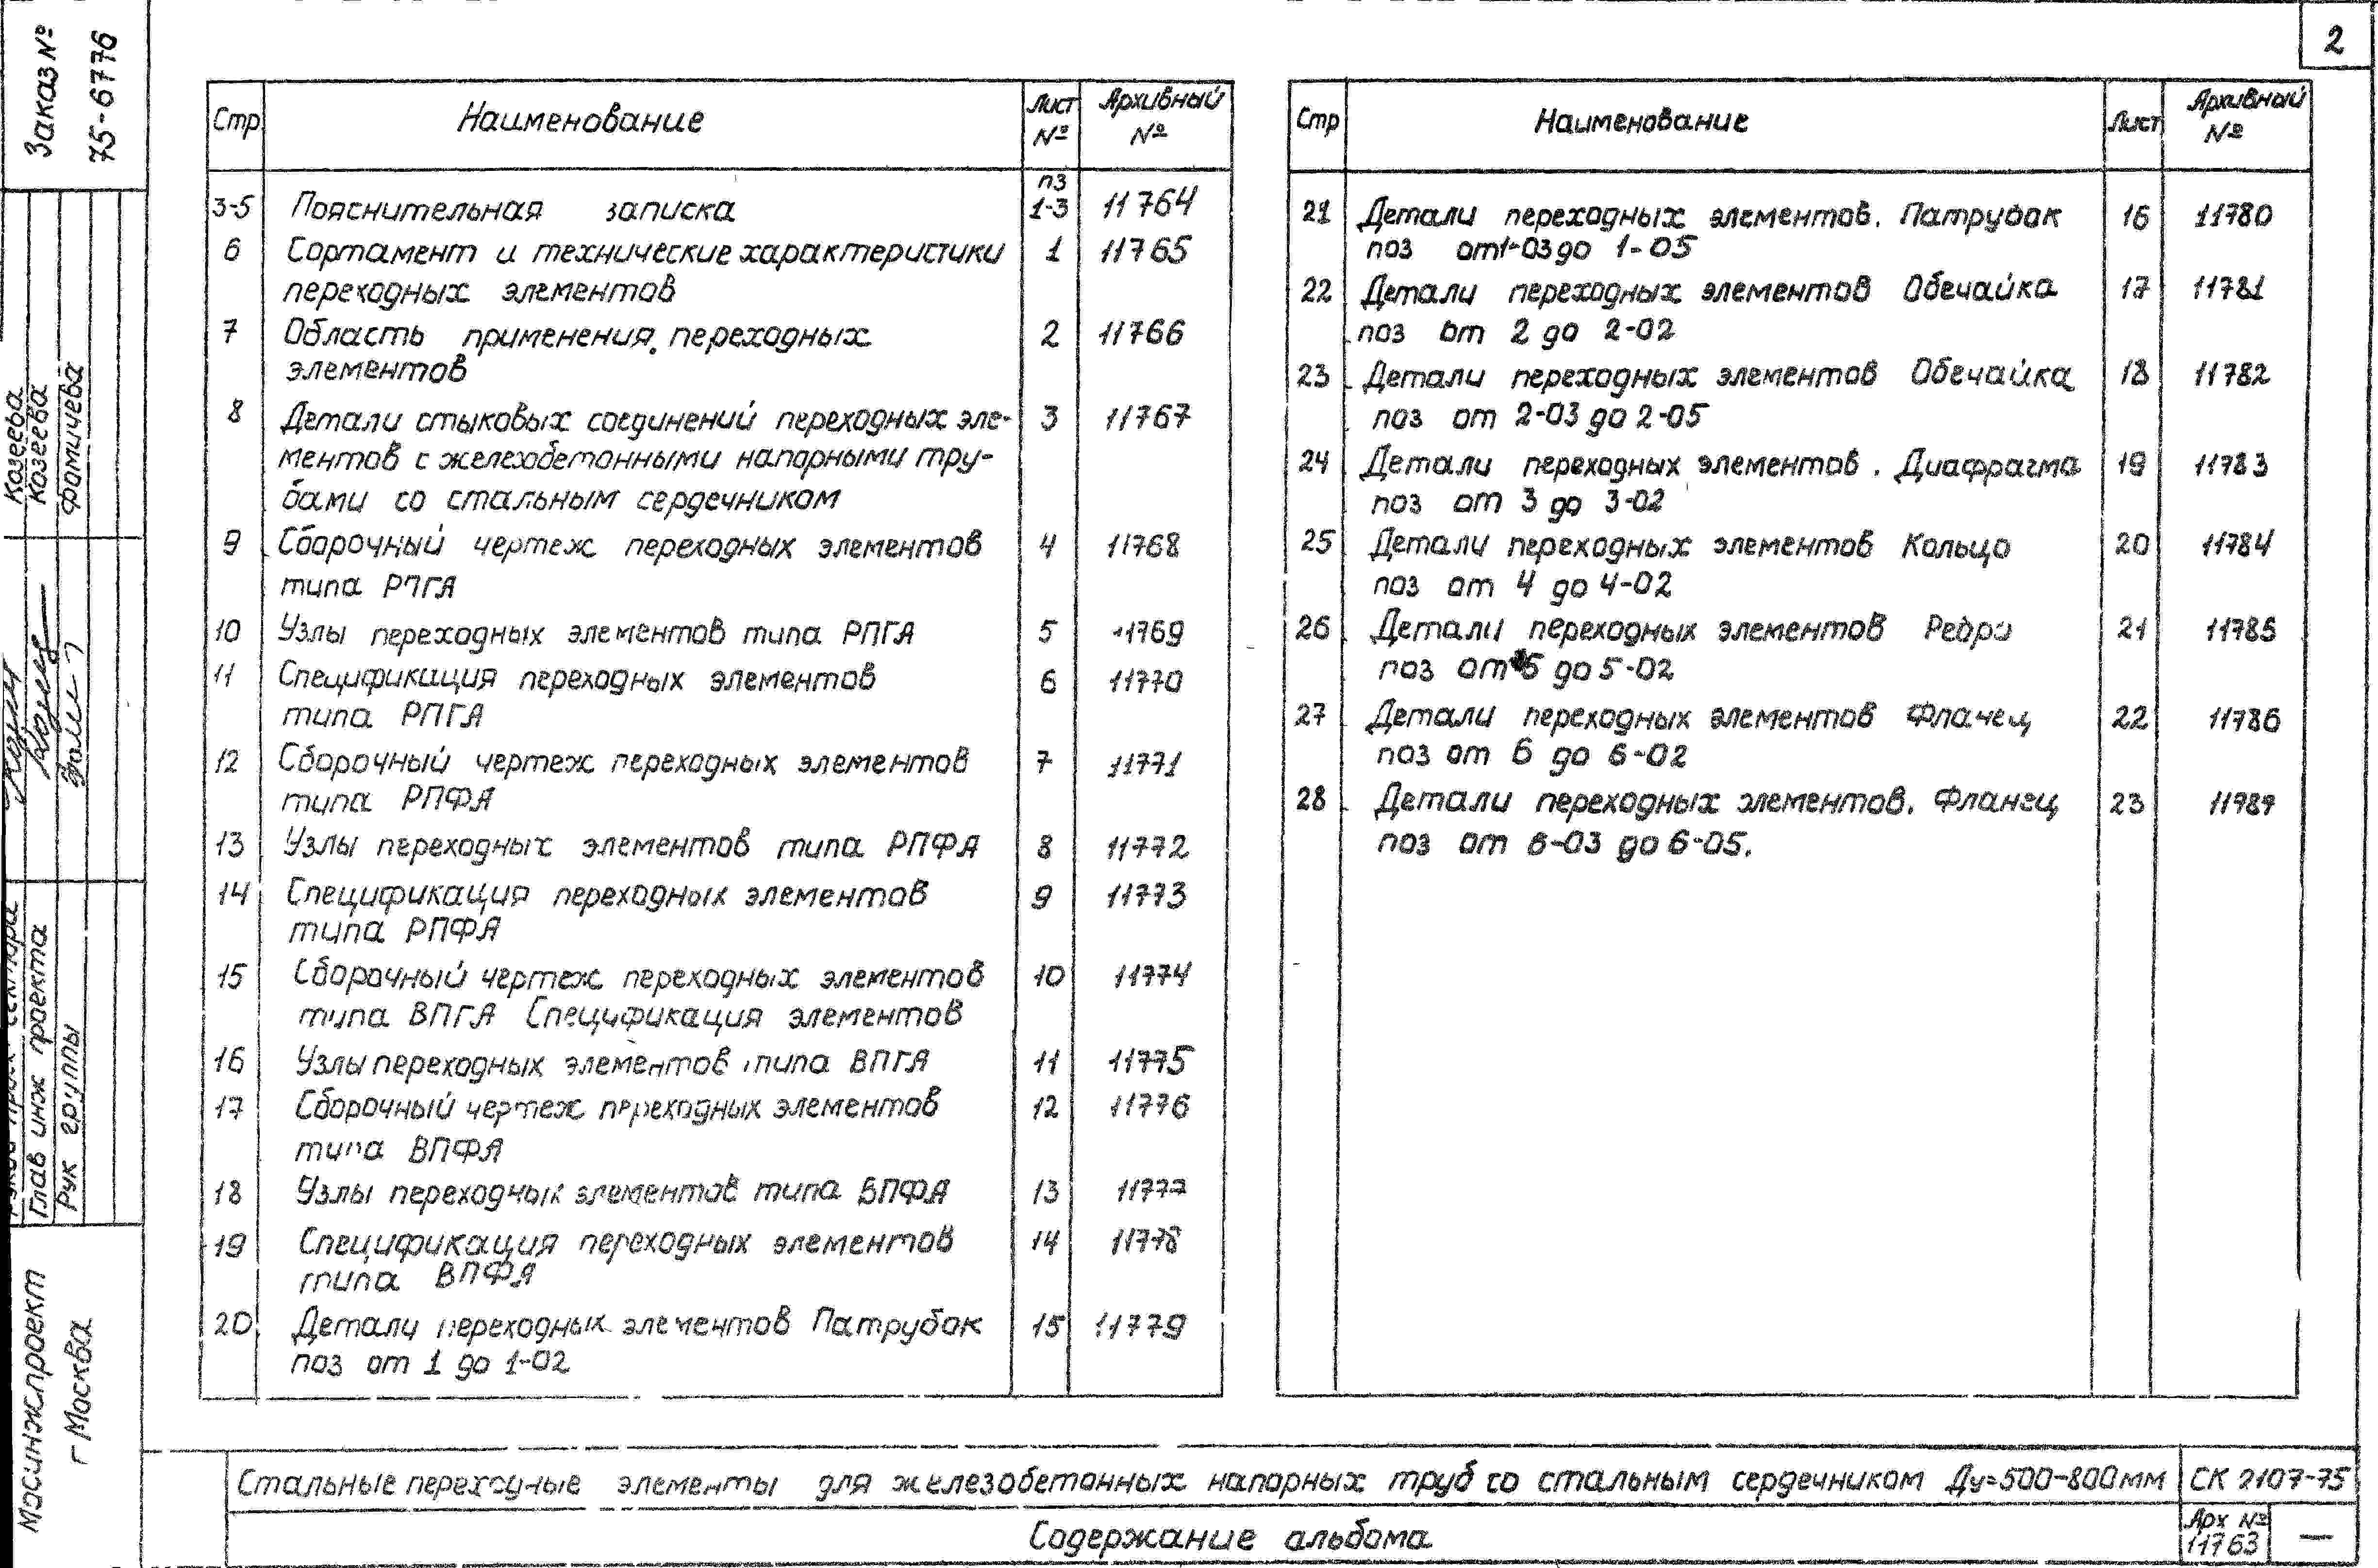 2
Заказ №
75-6776
Козеева
Козеева
Фомичева
Глав инж проекта
Рук группы
Мосинжпроект
г Москва
Стр Наименование Лист № Архивный №
3-5 Пояснительная записка ПЗ 1-3 11764
6 Сортамент и технические характеристики 1 11765
переходных элементов
7 Область применения переходных 2 11766
элементов
8 Детали стыковых соединений переходных эле- 3 11767
ментов с железобетонными напорными тру-
бами со стальным сердечником
9 Сборочный чертеж переходных элементов 4 11768
типа РПГА
10 Узлы переходных элементов типа РПГА 5 11769
11 Спецификация переходных элементов 6 11770
типа РПГА
12 Сборочный чертеж переходных элементов 7 11771
типа РПФА
13 Узлы переходных элементов типа РПФА 8 11772
14 Спецификация переходных элементов 9 11773
типа РПФА
15 Сборочный чертеж переходных элементов 10 11774
типа ВПГА Спецификация элементов
16 Узлы переходных элементов типа ВПГА 11 11775
17 Сборочный чертеж переходных элементов 12 11776
типа ВПФА
18 Узлы переходных элементов типа ВПФА 13 11777
19 Спецификация переходных элементов 14 11778
типа ВПФА
20 Детали переходных элементов Патрубок 15 11779
поз от 1 до 1-02
Стр Наименование Лист Архивный №
21 Детали переходных элементов. Патрубок 16 11780
поз от 1-03 до 1-05
22 Детали переходных элементов Обечайка 17 11781
поз от 2 до 2-02
23 Детали переходных элементов Обечайка 18 11782
поз от 2-03 до 2-05
24 Детали переходных элементов. Диафрагма 19 11783
поз от 3 до 3-02
25 Детали переходных элементов Кольцо 20 11784
поз от 4 до 4-02
26 Детали переходных элементов Ребро 21 11785
поз от 5 до 5-02
27 Детали переходных элементов Фланец 22 11786
поз от 6 до 6-02
28 Детали переходных элементов. Фланец 23
поз от 6-03 до 6-05.
Стальные переходные элементы для железобетонных напорных труб со стальным сердечником Ду=500-800мм СК 2107-75
Содержание альбома
Арх №
11763 —